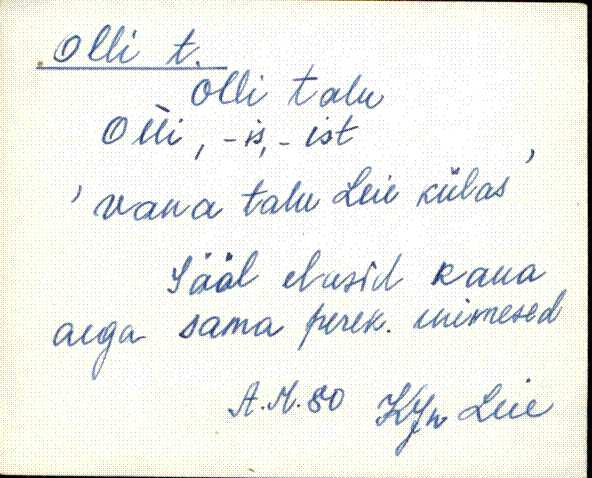 Olli t.
Olli talu
Olli, -is, -ist
'vana talu Leie külas'
Sääl elasid kaua
aega sama perek. inimesed
A.M. 80 KJn Leie